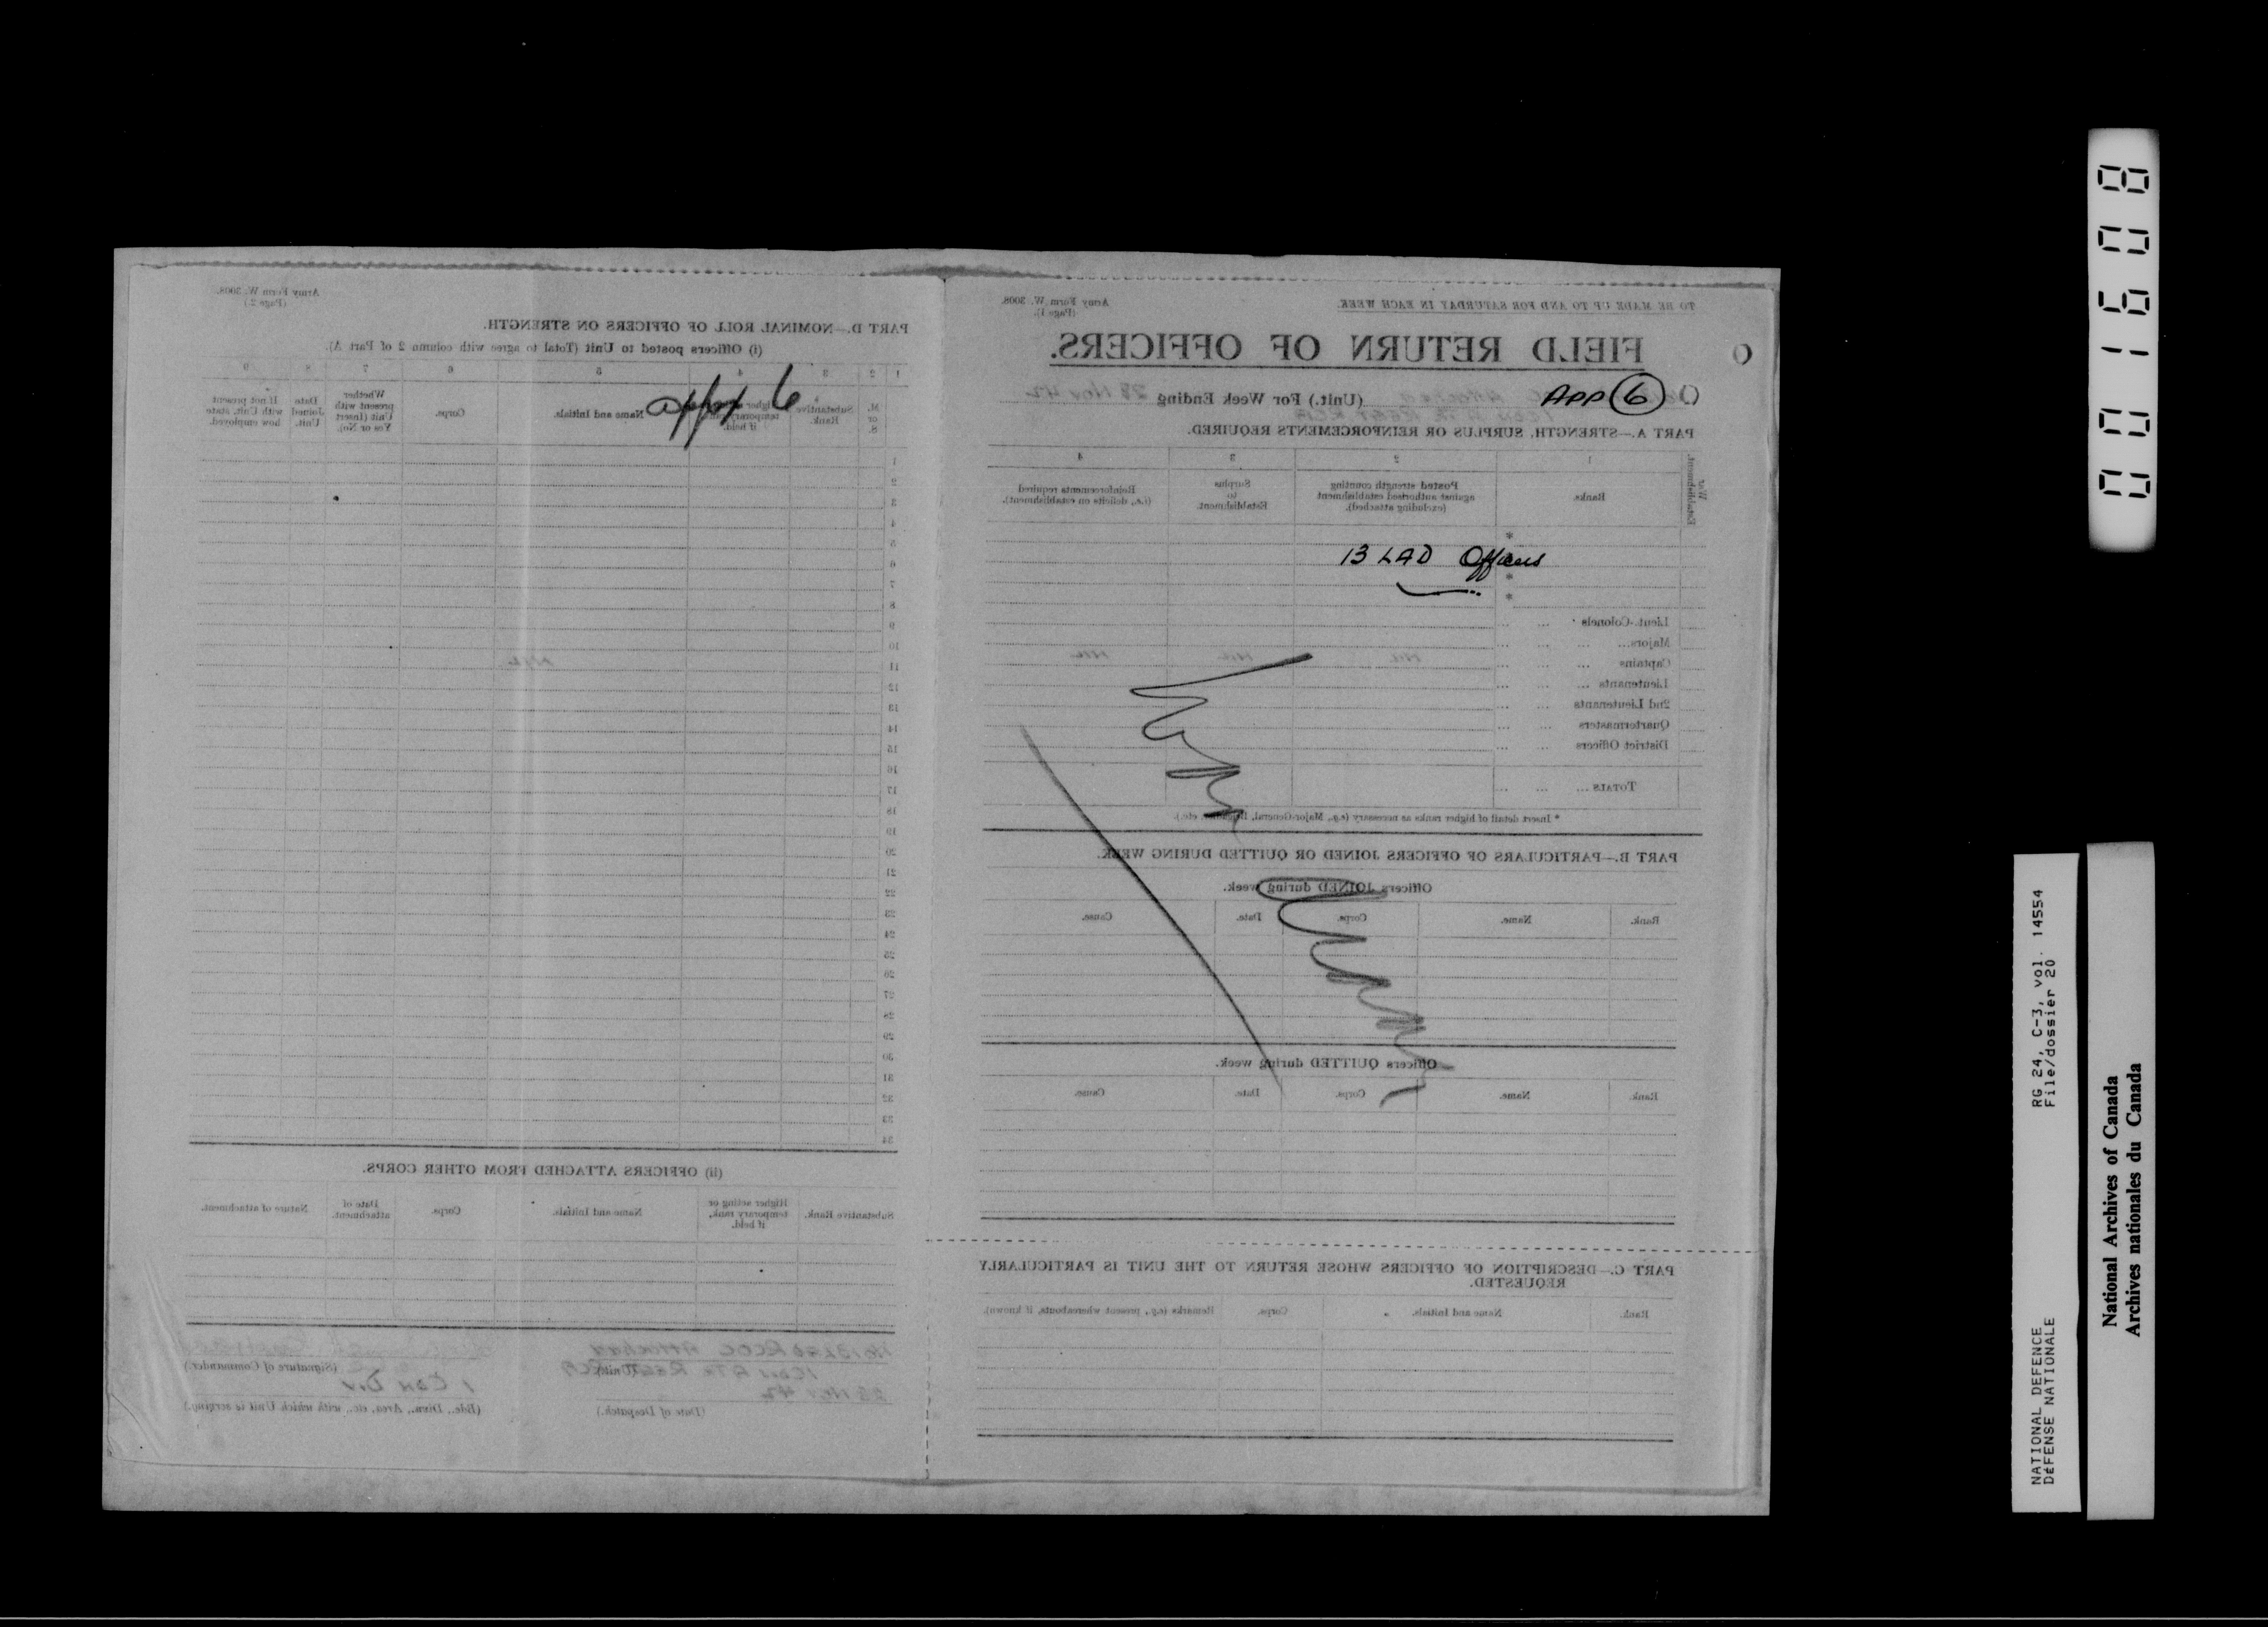 Army Form W. 3008.
(Page 2.)
PART D.—NOMINAL ROLL OF OFFICERS ON STRENGTH.
(i) Officers posted to Unit (Total to agree with column 2 of Part A).
1 2 3 4 5 6 7 8 9
M. or S.
Substantive Rank.
if held.
Name and Initials.
Corps.
Whether present with Unit (Insert Yes or No).
Date Joined Unit.
If not present with Unit, state how employed.
appx 6
1
2
3
4
5
6
7
8
9
10
11
12
13
14
15
16
17
18
19
20
21
22
23
24
25
26
27
28
29
30
31
32
33
34
(ii) OFFICERS ATTACHED FROM OTHER CORPS.
Substantive Rank.
Higher acting or temporary rank, if held.
Name and Initials.
Corps.
Date of attachment.
Nature of attachment.
(Signature of Commander.)
1 Can Div
(Unit.)
28 Nov 42
(Bde., Divn., Area, etc., with which Unit is serving.)
(Date of Despatch.)
TO BE MADE UP TO AND FOR SATURDAY IN EACH WEEK.
Army Form W. 3008.
(Page 1).
FIELD RETURN OF OFFICERS.
APP 6
(Unit.) For Week Ending 28 Nov 42
PART A.—STRENGTH, SURPLUS OR REINFORCEMENTS REQUIRED.
War Establishment.
1 2 3 4
Ranks.
Posted strength counting against authorised establishment (excluding attached).
Surplus to Establishment.
Reinforcements required (i.e., deficits on establishment).
13 LAD Officers
Lieut.-Colonels ... ...
Majors... ... ...
Captains ... ... ...
Lieutenants ... ... ...
2nd Lieutenants ... ...
Quartermasters ... ...
District Officers ... ...
TOTALS ... ... ...
* Insert detail of higher ranks as necessary (e.g., Major-General, Brigadier, etc.).
PART B.—PARTICULARS OF OFFICERS JOINED OR QUITTED DURING WEEK.
Officers JOINED during week.
Rank. Name. Corps. Date. Cause.
Officers QUITTED during week.
Rank. Name. Corps. Date. Cause.
PART C.—DESCRIPTION OF OFFICERS WHOSE RETURN TO THE UNIT IS PARTICULARLY
REQUESTED.
Rank. Name and Initials. Corps. Remarks (e.g., present whereabouts, if known).
0 0 1 6 0 8
RG 24, C-3, vol. 14554
File/dossier 20
NATIONAL DEFENCE
DÉFENSE NATIONALE
National Archives of Canada
Archives nationales du Canada